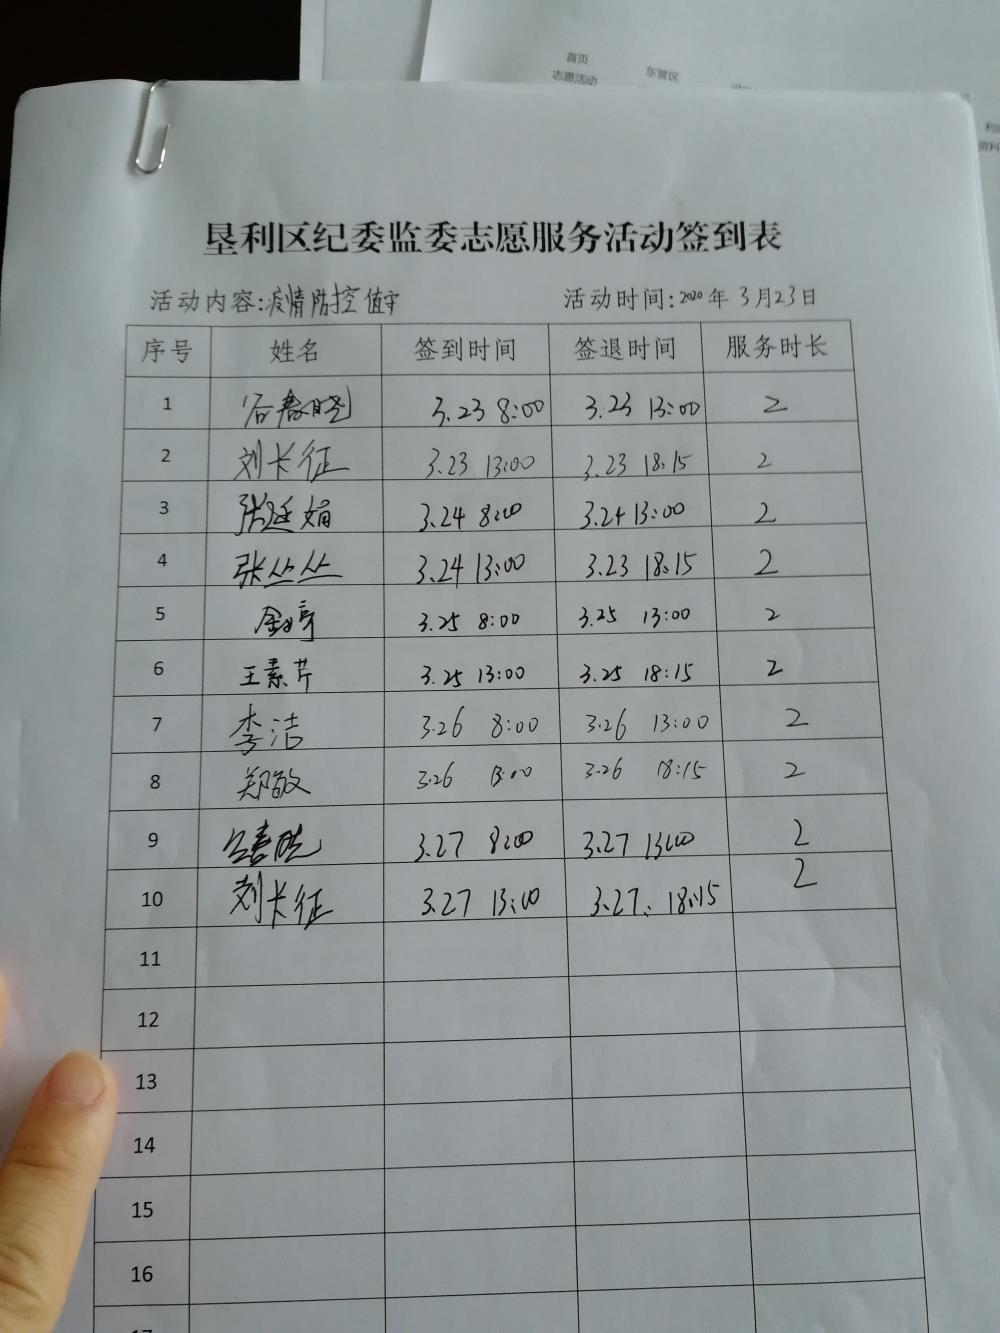 首页
志愿活动
东营区
垦利区纪委监委志愿服务活动签到表
活动内容:疫情防控值守 活动时间:2020年3月23日
序号 姓名 签到时间 签退时间 服务时长
1 谷春晓 3.23 8:00 3.23 13:00 2
2 刘长征 3.23 13:00 3.23 18:15 2
3 张廷娟 3.24 8:00 3.24 13:00 2
4 张丛丛 3.24 13:00 3.23 18:15 2
5 3.25 8:00 3.25 13:00 2
6 王素芹 3.25 13:00 3.25 18:15 2
7 李洁 3.26 8:00 3.26 13:00 2
8 郑敬 3.26 13:00 3.26 18:15 2
9 3.27 8:00 3.27 13:00 2
10 刘长征 3.27 13:00 3.27. 18:15 2
11
12
13
14
15
16
17